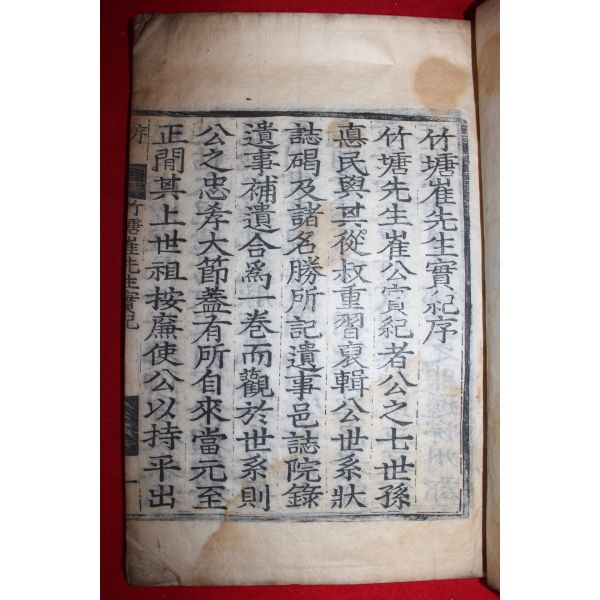 竹塘崔先生實紀序
竹塘先生崔公實紀者公之七世孫
悳民與其從叔重習裒輯公世系狀
誌碣及諸名勝所記遺事邑誌院錄
遺事補遺合爲一卷而觀於世系則
公之忠孝大節蓋有所自來當元至
正間其上世祖按廉使公以持平出
序
竹塘崔先生實紀
一